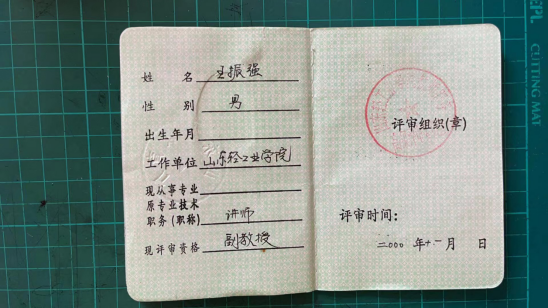 姓 名 王振强
性 别 男
出生年月
工作单位 山东轻工业学院
现从事专业
原专业技术
职务(职称) 讲师
现评审资格 副教授
评审组织(章)
评审时间:
二000年十一月 日
CUTTING MAT